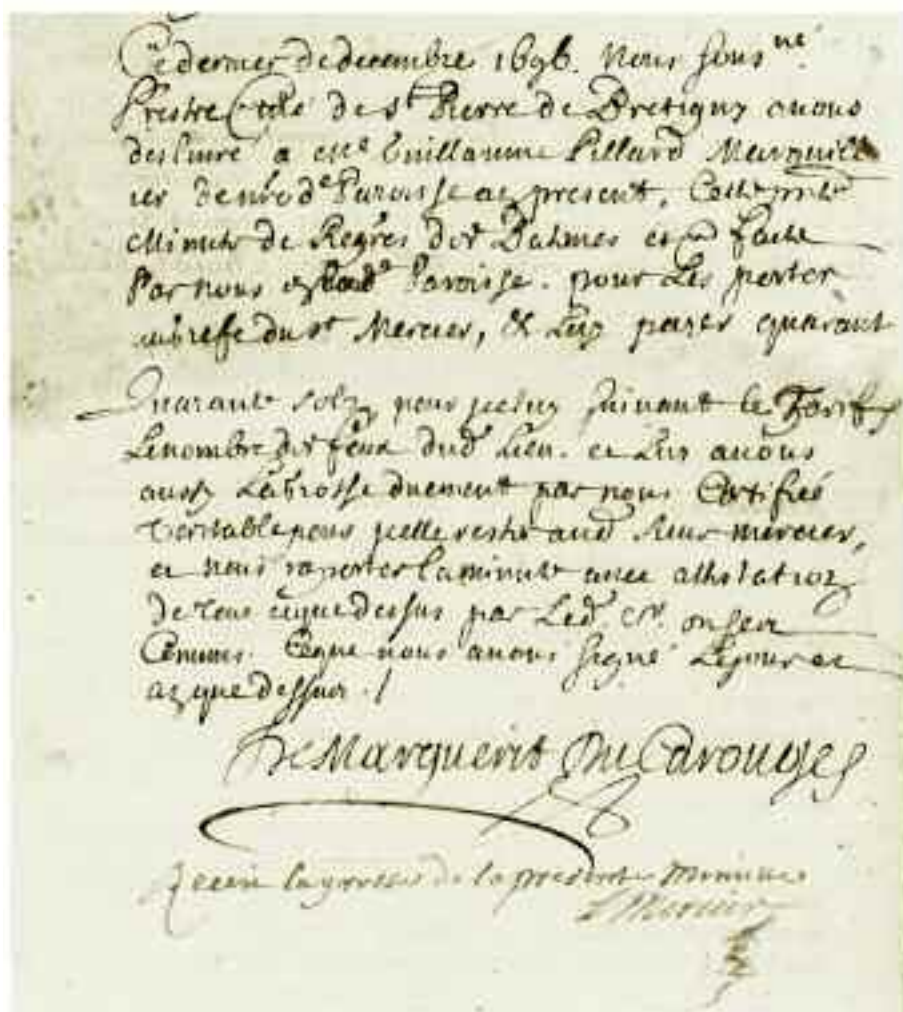 Ce dernier de decembre 1696. Nous sous.né
Prestre Curé de st Pierre de Bretigny avons
deslivré a Me Guillaume Pillard Marguill
ier de nre de Paroisse a present, Cette pnte
Minute de Regres des Batmes et faite
Par nous Paroisse. pour Les porter
du sr Mercier, & Luy payer quarant
Quarante solz pour jceluy suivant le Tarif
Le nombre des feux dud Lieu. et Luy avons
aussy La Grosse duement par nous Certifiée
veritable pour jcelle rester aud sieur mercier,
et nous raporter la minute avec attestation
de tous ce que dessus par Led. Sr.
Commis. Ce que nous avons signé Le jour et
an que dessus. /
De Marguerit Du Carouges
Receu la grosse de la presente Minutte
L Mercier